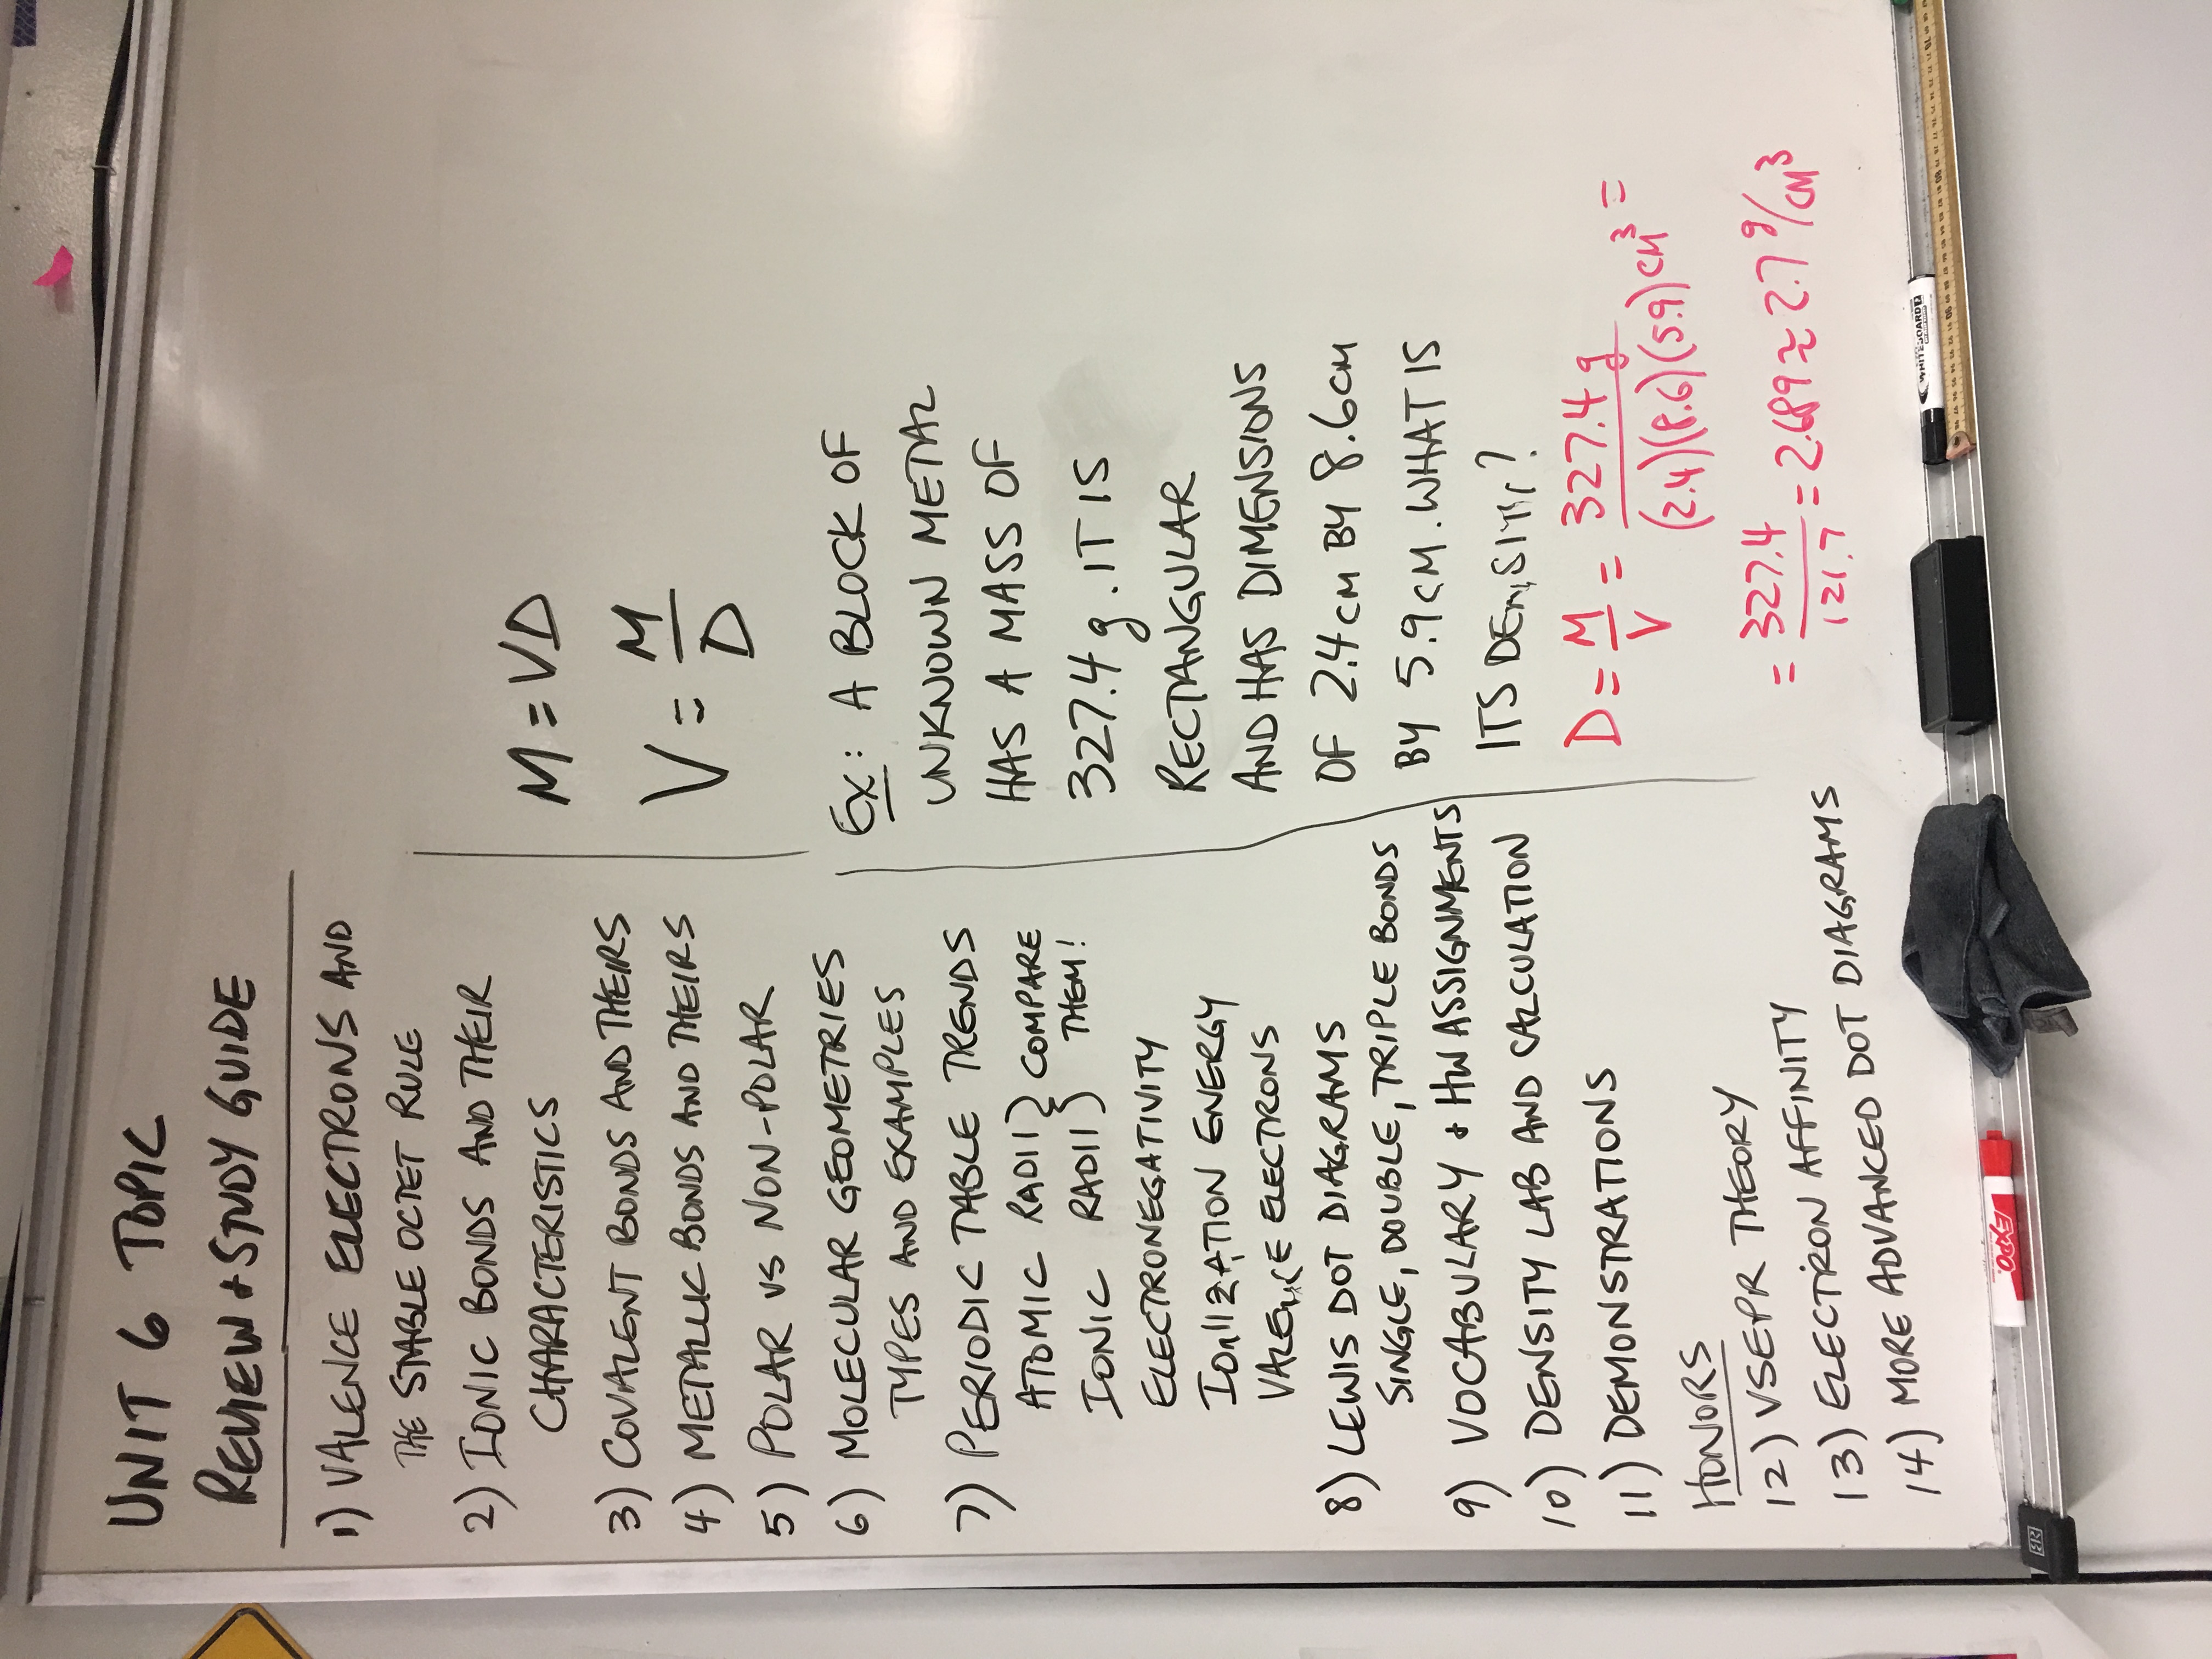 UNIT 6 TOPIC
REVIEW + STUDY GUIDE
1) VALENCE ELECTRONS AND
THE STABLE OCTET RULE
2) IONIC BONDS AND THEIR
CHARACTERISTICS
3) COVALENT BONDS AND THEIRS
4) METALLIC BONDS AND THEIRS
5) POLAR VS NON-POLAR
6) MOLECULAR GEOMETRIES
TYPES AND EXAMPLES
7) PERIODIC TABLE TRENDS
ATOMIC RADII } COMPARE
IONIC RADII } THEM!
ELECTRONEGATIVITY
IONIIZATION ENERGY
VALENCE ELECTRONS
8) LEWIS DOT DIAGRAMS
SINGLE, DOUBLE, TRIPLE BONDS
9) VOCABULARY + HW ASSIGNMENTS
10) DENSITY LAB AND CALCULATION
11) DEMONSTRATIONS
HONORS
12) VSEPR THEORY
13) ELECTRON AFFINITY
14) MORE ADVANCED DOT DIAGRAMS
M = VD
V = M/D
EX: A BLOCK OF
UNKNOWN METAL
HAS A MASS OF
327.4 g. IT IS
RECTANGULAR
AND HAS DIMENSIONS
OF 2.4 CM BY 8.6 CM
BY 5.9 CM. WHAT IS
ITS DENSITY?
D = M/V = 327.4 g / (2.4)(8.6)(5.9) CM³ =
= 327.4 / 121.7 = 2.689 ≈ 2.7 g/CM³
EXPO
WHITEBOARD